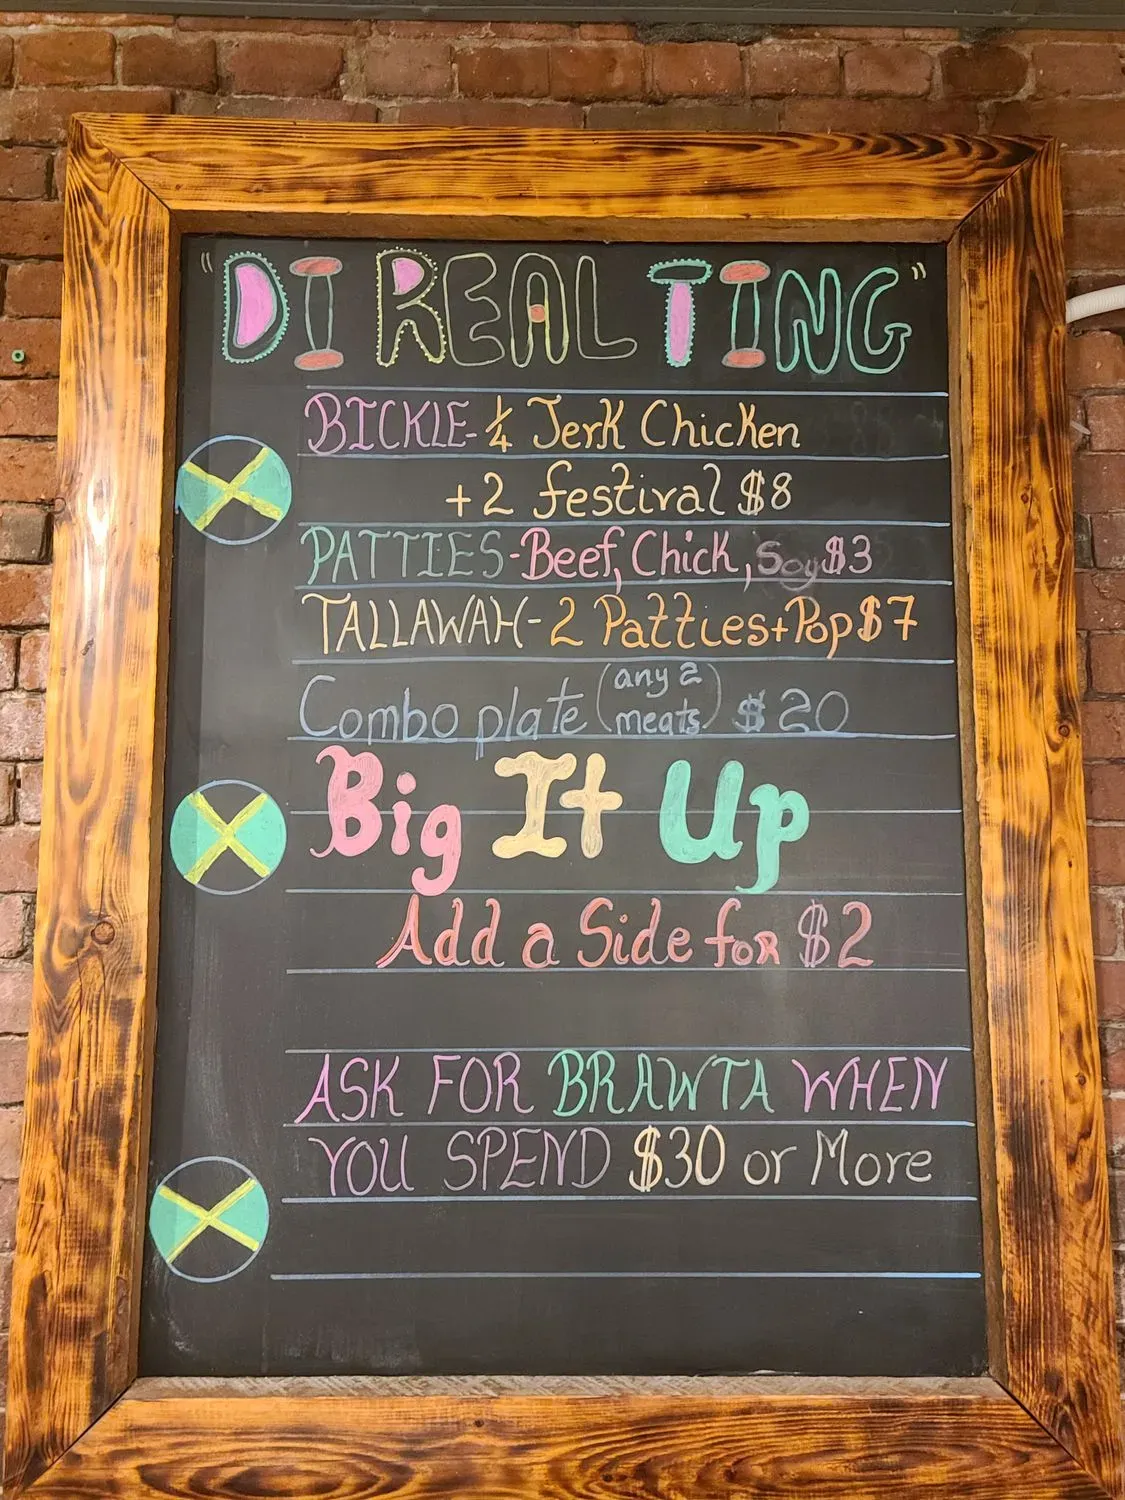 "DI REAL TING"
BICKLE - 1/4 Jerk Chicken
+ 2 festival $8
PATTIES - Beef, Chick, Soy $3
TALLAWAH - 2 Patties + Pop $7
Combo plate (any 2 meats) $20
Big It Up
Add a Side for $2
ASK FOR BRAWTA WHEN
YOU SPEND $30 or More